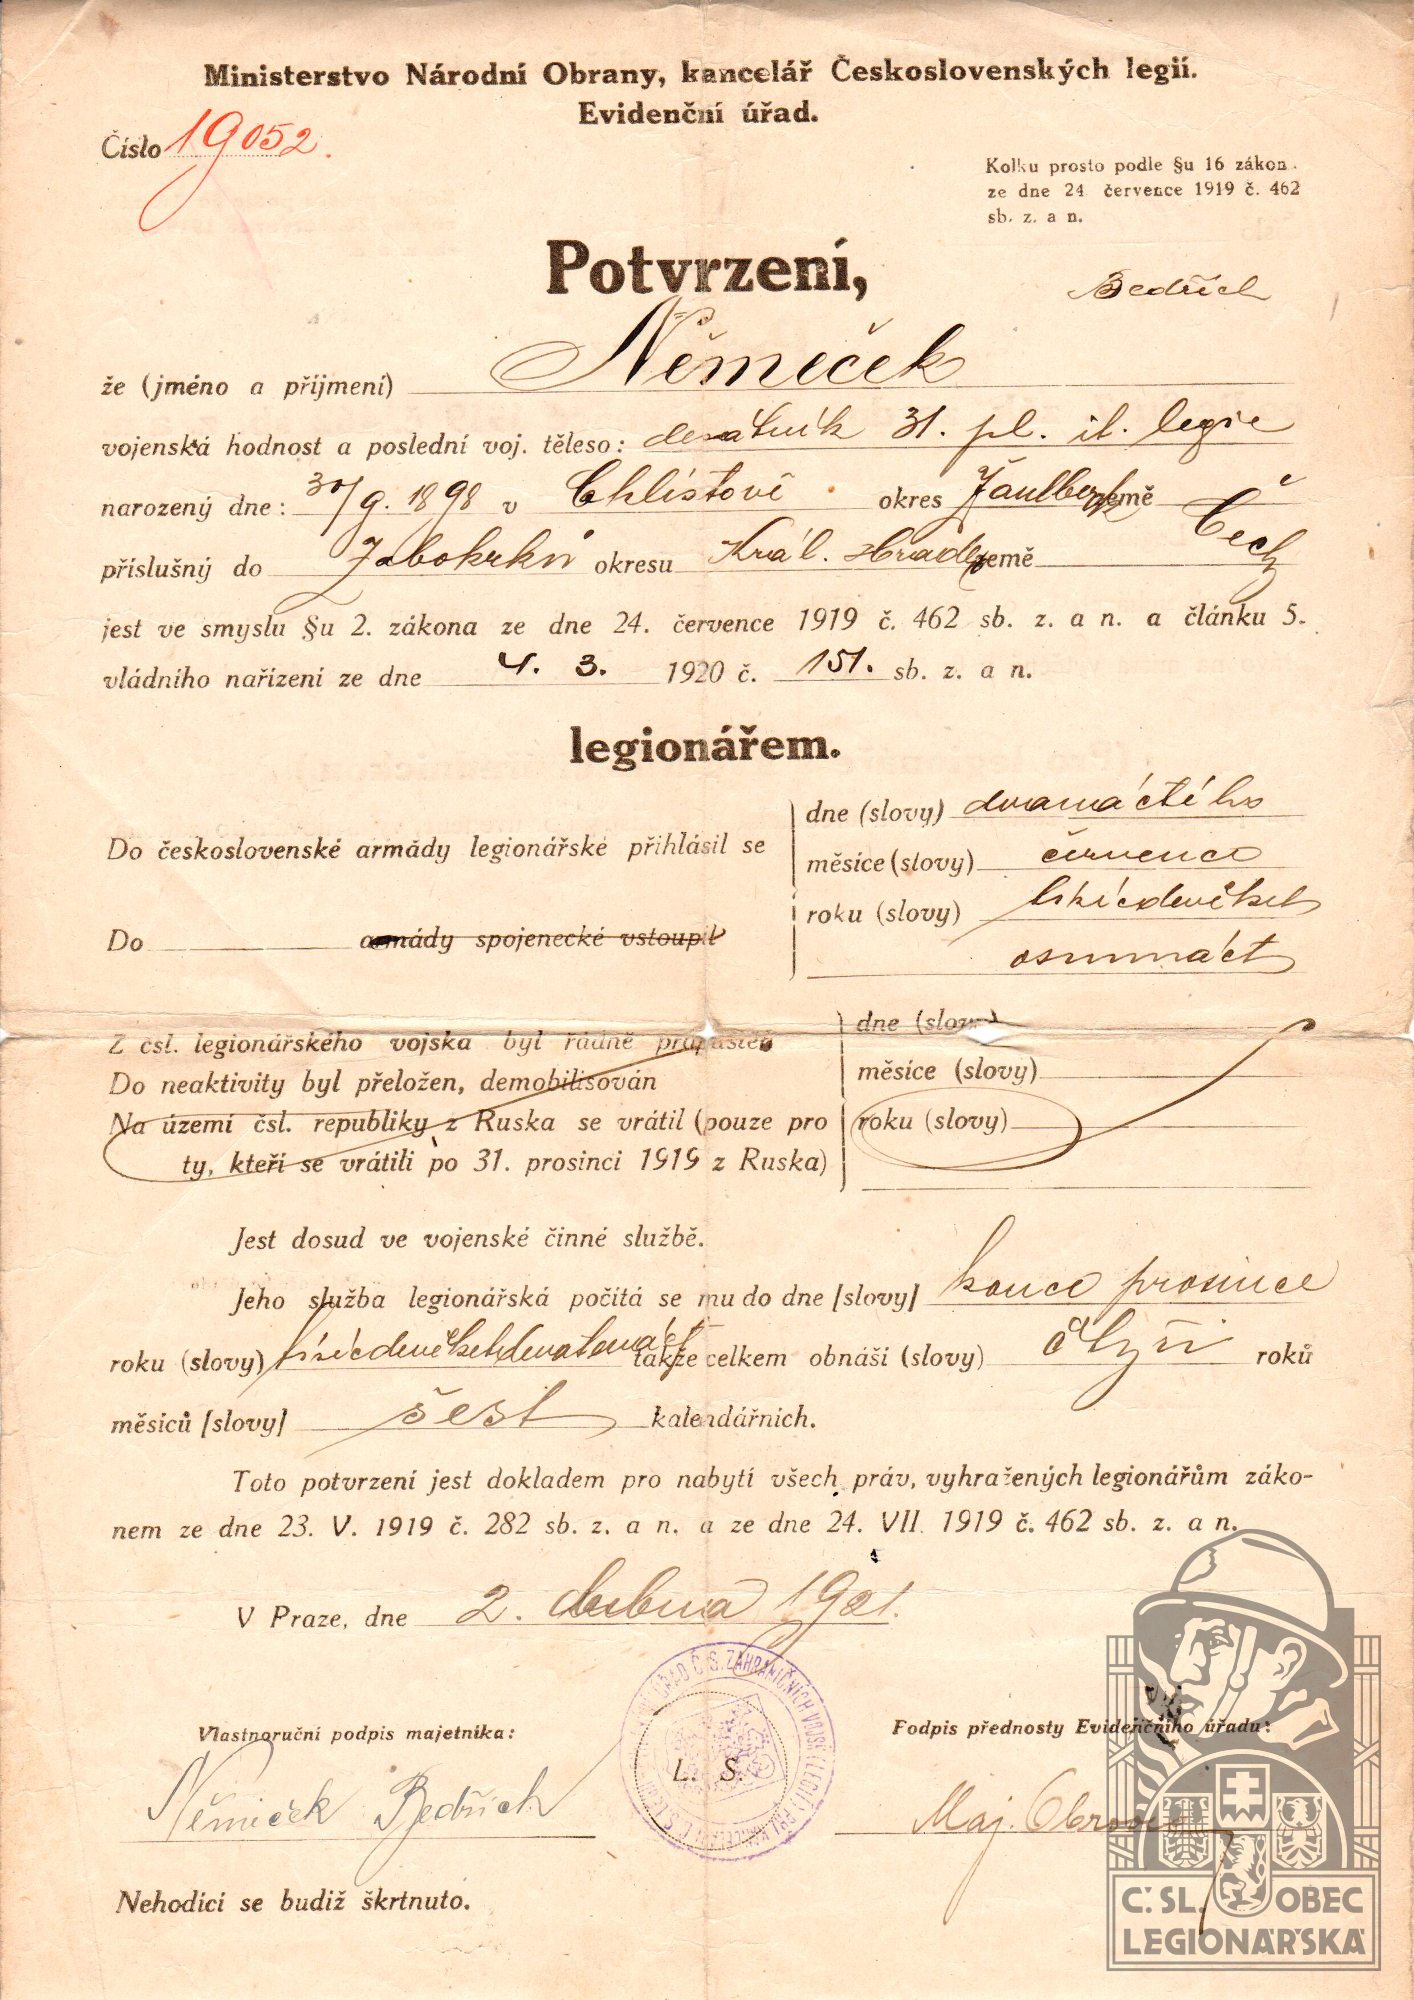 Ministerstvo Národní Obrany, kancelář Československých legií.
Evidenční úřad.
Číslo 19052.
Kolku prosto podle §u 16 zákon.
ze dne 24. července 1919 č. 462
sb. z. a n.
Potvrzení,
Bedřich
že (jméno a příjmení) Němeček
vojenská hodnost a poslední voj. těleso: desátník 31. pl. it. legie
narozený dne: 30/9. 1898 v Chlístově okres země
příslušný do Žabokrků okresu Král. Hradec země Čechy
jest ve smyslu §u 2. zákona ze dne 24. července 1919 č. 462 sb. z. a n. a článku 5.
vládního nařízení ze dne 4. 3. 1920 č. 151. sb. z. a n.
legionářem.
Do československé armády legionářské přihlásil se
dne (slovy) dvanáctého
měsíce (slovy) července
roku (slovy) tisícdevětset
osmnáct
Do armády spojenecké vstoupil
Z čsl. legionářského vojska byl řádně propuštěn
Do neaktivity byl přeložen, demobilisován
Na území čsl. republiky z Ruska se vrátil (pouze pro
ty, kteří se vrátili po 31. prosinci 1919 z Ruska)
dne (slovy)
měsíce (slovy)
roku (slovy)
Jest dosud ve vojenské činné službě.
Jeho služba legionářská počítá se mu do dne [slovy] konce prosince
roku (slovy) tisícdevětsetdevatenáct takže celkem obnáší (slovy) čtyři roků
měsíců [slovy] šest kalendářních.
Toto potvrzení jest dokladem pro nabytí všech práv, vyhražených legionářům záko-
nem ze dne 23. V. 1919 č. 282 sb. z. a n. a ze dne 24. VII. 1919 č. 462 sb. z. a n.
V Praze, dne 2. dubna 1921.
Vlastnoruční podpis majetníka:
Podpis přednosty Evidenčního úřadu:
L. S.
Němeček Bedřich
Maj.
Nehodící se budiž škrtnuto.
Č.SL. OBEC
LEGIONÁŘSKÁ